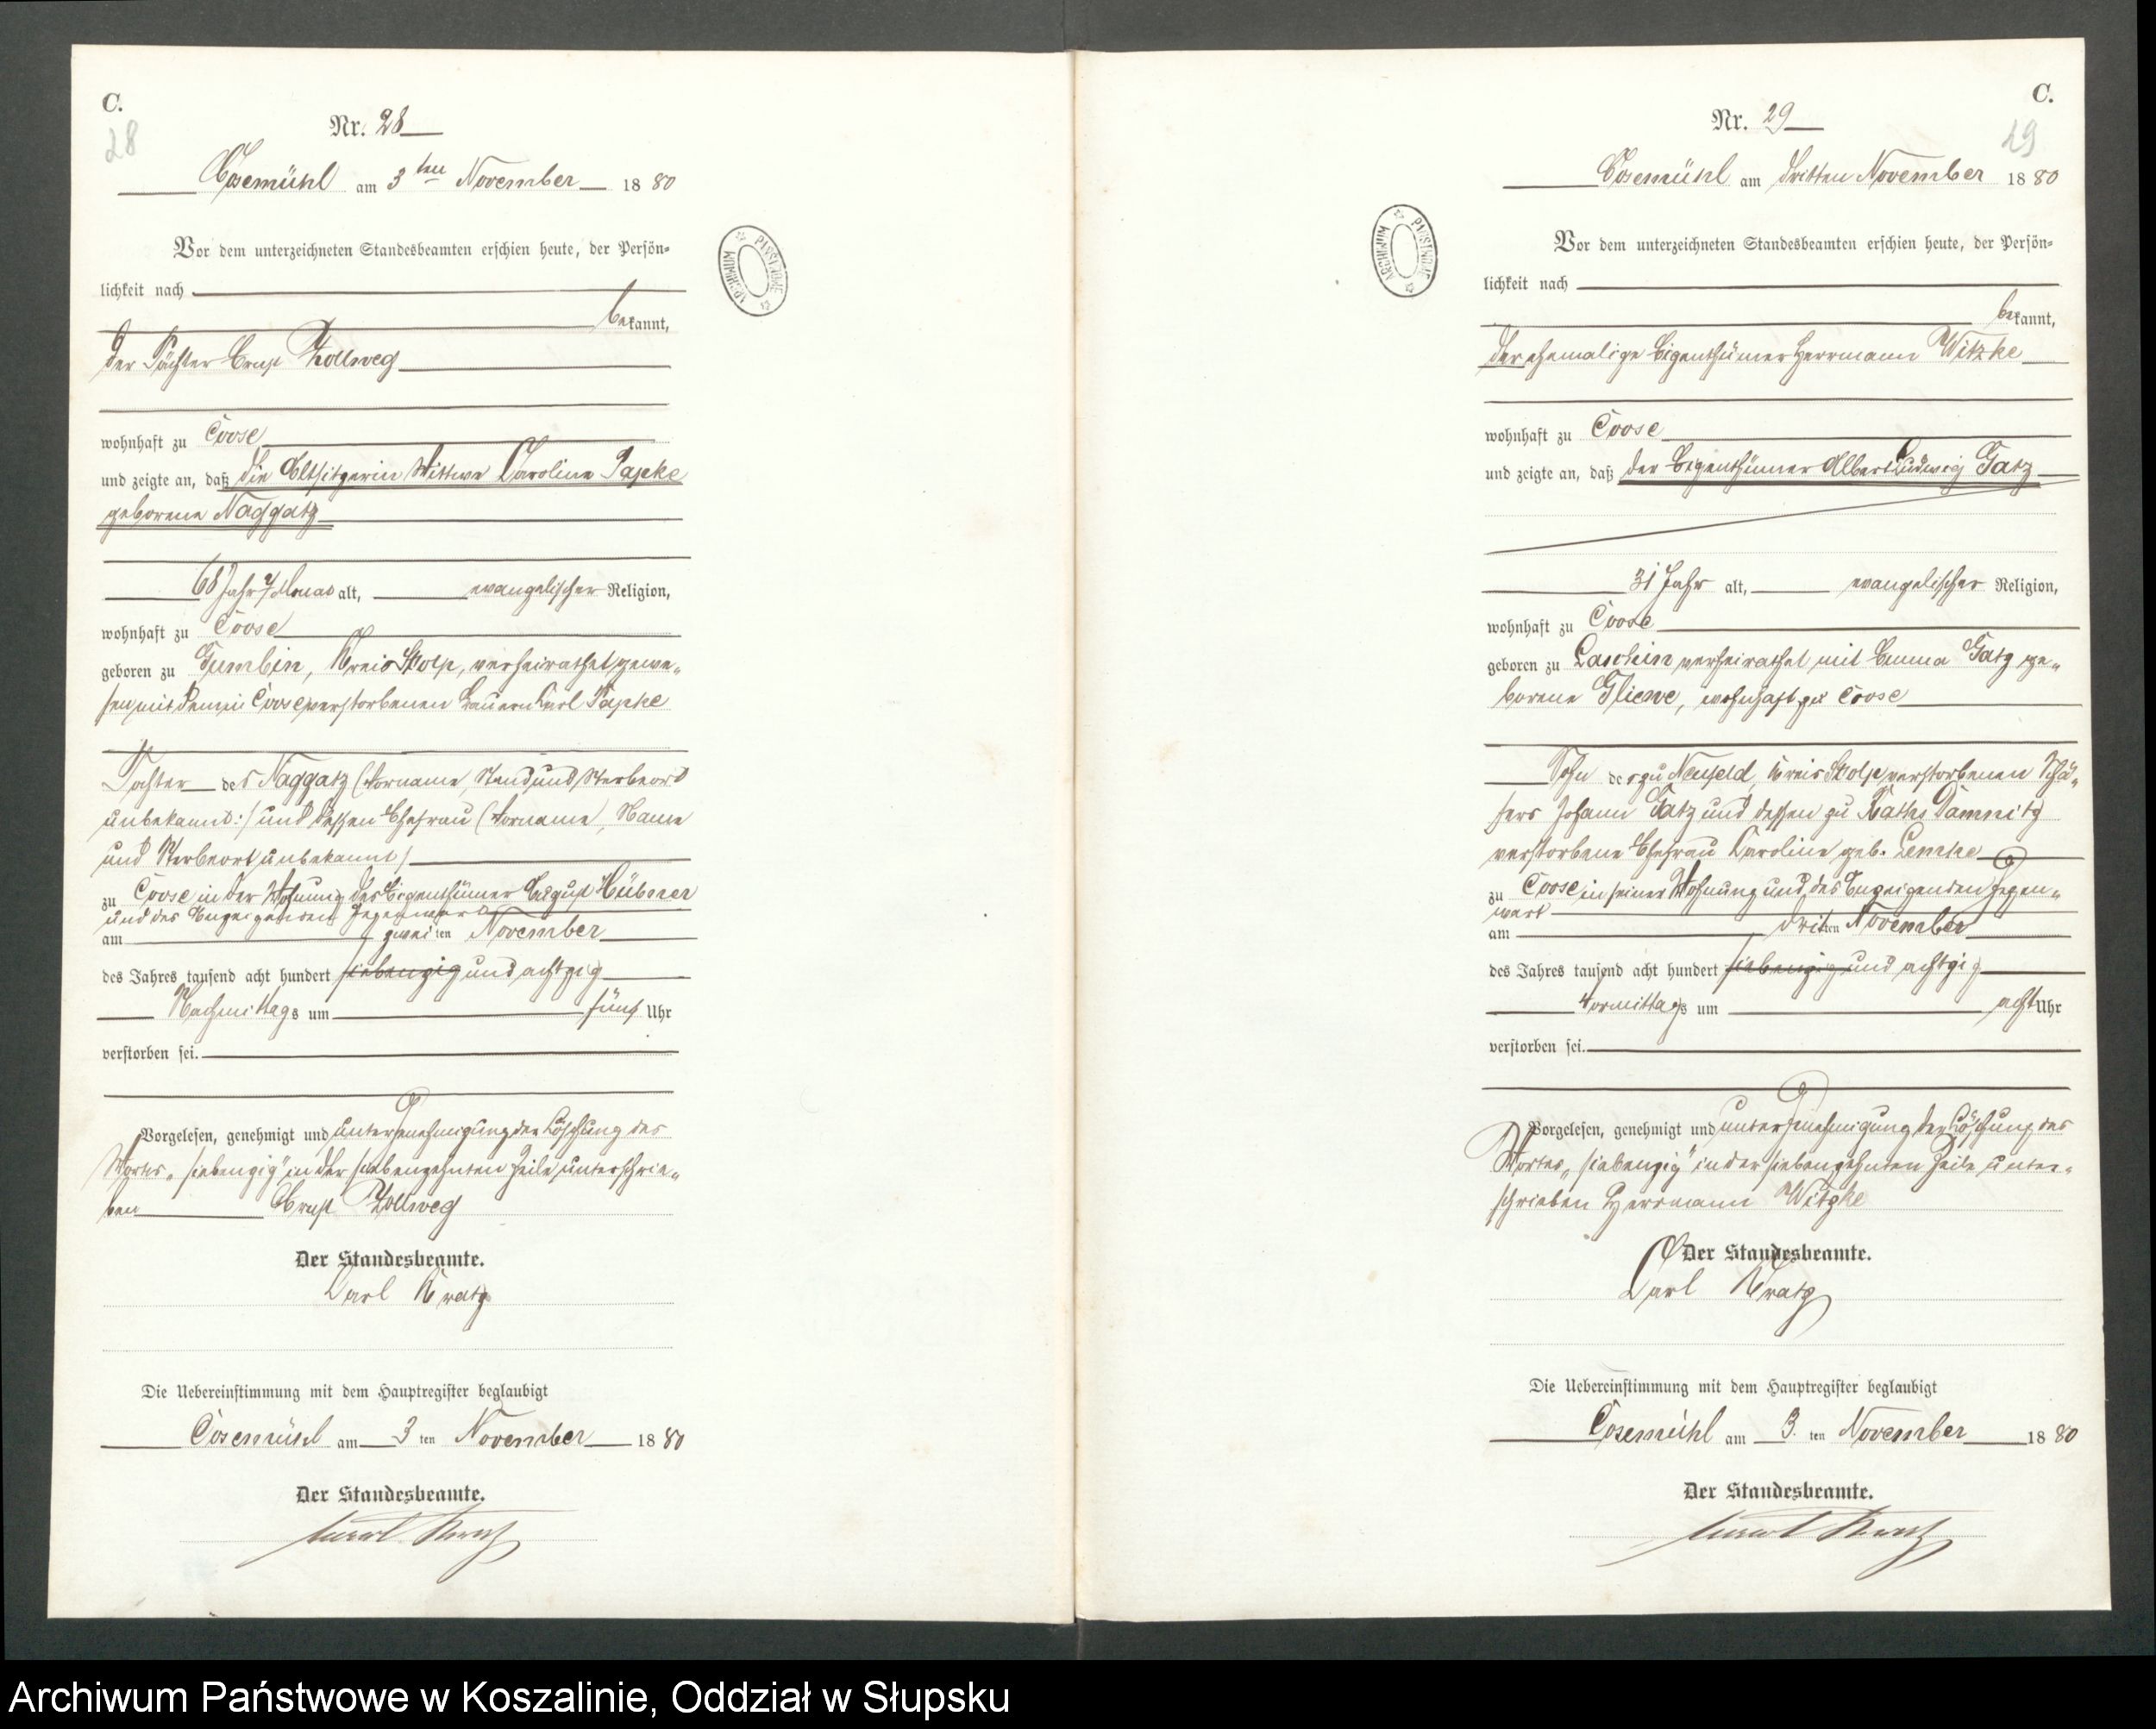 C.
28
Nr. 28
Cosemühl am 3ten November 1880
Vor dem unterzeichneten Standesbeamten erschien heute, der Persön-
lichkeit nach
bekannt,
der Pächter Ernst Zollweg
wohnhaft zu Coose
und zeigte an, daß die Altsitzerin Wittwe Caroline Papke
geborene Naggatz
68 Jahr 7 Monat alt, evangelischer Religion,
wohnhaft zu Coose
geboren zu Gumbin, Kreis Stolp, verheirathet gewe-
sen mit dem in Coose verstorbenen Bauern Carl Papke
Tochter des Naggatz (Vorname, Stand und Sterbeort
unbekannt:/ und dessen Ehefrau (Vorname, Name
und Sterbeort unbekannt/
zu Coose in der Wohnung des Eigenthümer August Hübner
und des Anzeigenden Gegenwart
am zweiten November
des Jahres tausend acht hundert siebenzig und achtzig
Nachmittags um fünf Uhr
verstorben sei.
Vorgelesen, genehmigt und unter Genehmigung der Löschung des
Wortes „siebenzig" in der siebenzehnten Zeile unterschrie-
ben Ernst Zollweg
Der Standesbeamte.
Carl Kratz
Die Uebereinstimmung mit dem Hauptregister beglaubigt
Cosemühl am 3 ten November 1880
Der Standesbeamte.
Kratz
ARCHIWUM PAŃSTWOWE
C.
29
Nr. 29
Cosemühl am dritten November 1880
Vor dem unterzeichneten Standesbeamten erschien heute, der Persön-
lichkeit nach
bekannt,
der ehemalige Eigenthümer Herrmann Witzke
wohnhaft zu Coose
und zeigte an, daß der Eigenthümer Albert Ludwig Gatz
31 Jahr alt, evangelischer Religion,
wohnhaft zu Coose
geboren zu verheirathet mit Emma Gatz ge-
borene Gliewe, wohnhaft zu Coose
Sohn des zu Neufeld, Kreis Stolp verstorbenen Schä-
fers Johann Gatz und dessen zu Raths Damnitz
verstorbene Ehefrau Caroline geb. Lemke
zu Coose in seiner Wohnung und des Anzeigenden Gegen-
wart
am dritten November
des Jahres tausend acht hundert siebenzig und achtzig
Vormittags um acht Uhr
verstorben sei.
Vorgelesen, genehmigt und unter Genehmigung der Löschung des
Wortes „siebenzig" in der siebenzehnten Zeile unter-
schrieben Herrmann Witzke
Der Standesbeamte.
Carl Kratz
Die Uebereinstimmung mit dem Hauptregister beglaubigt
Cosemühl am 3. ten November 1880
Der Standesbeamte.
Kratz
ARCHIWUM PAŃSTWOWE
Archiwum Państwowe w Koszalinie, Oddział w Słupsku